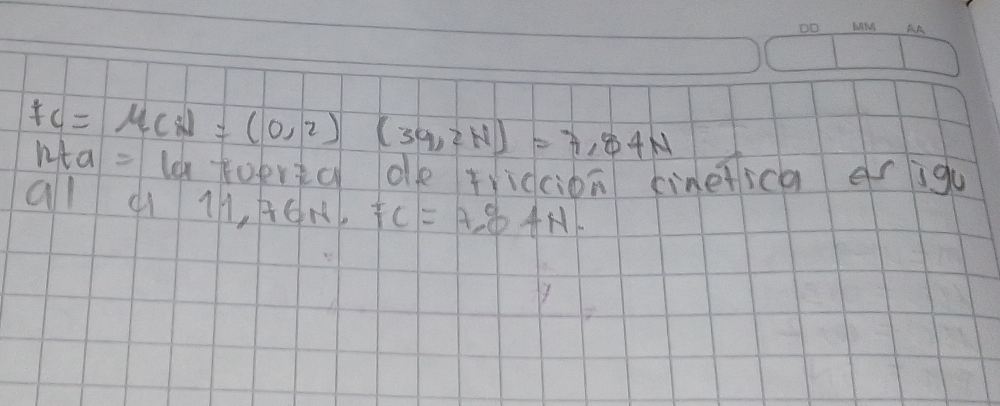 DD MM AA
fc = μcN = (0,2) (39,2N) = 7,84N
nta = la fuerza de fricción cinetica es igu
al a 11,76N. fc = 7,84N.